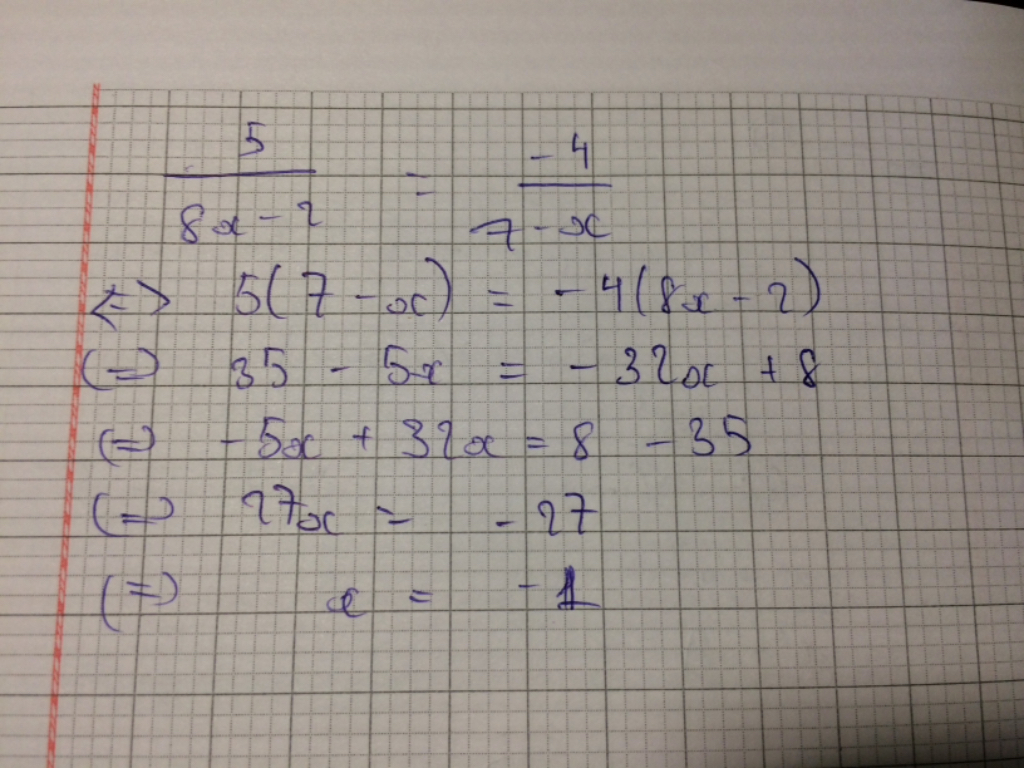 5/(8x - 2) = -4/(7 - x)
<=> 5(7 - x) = -4(8x - 2)
(=) 35 - 5x = -32x + 8
(=) -5x + 32x = 8 - 35
(=) 27x = -27
(=) x = -1